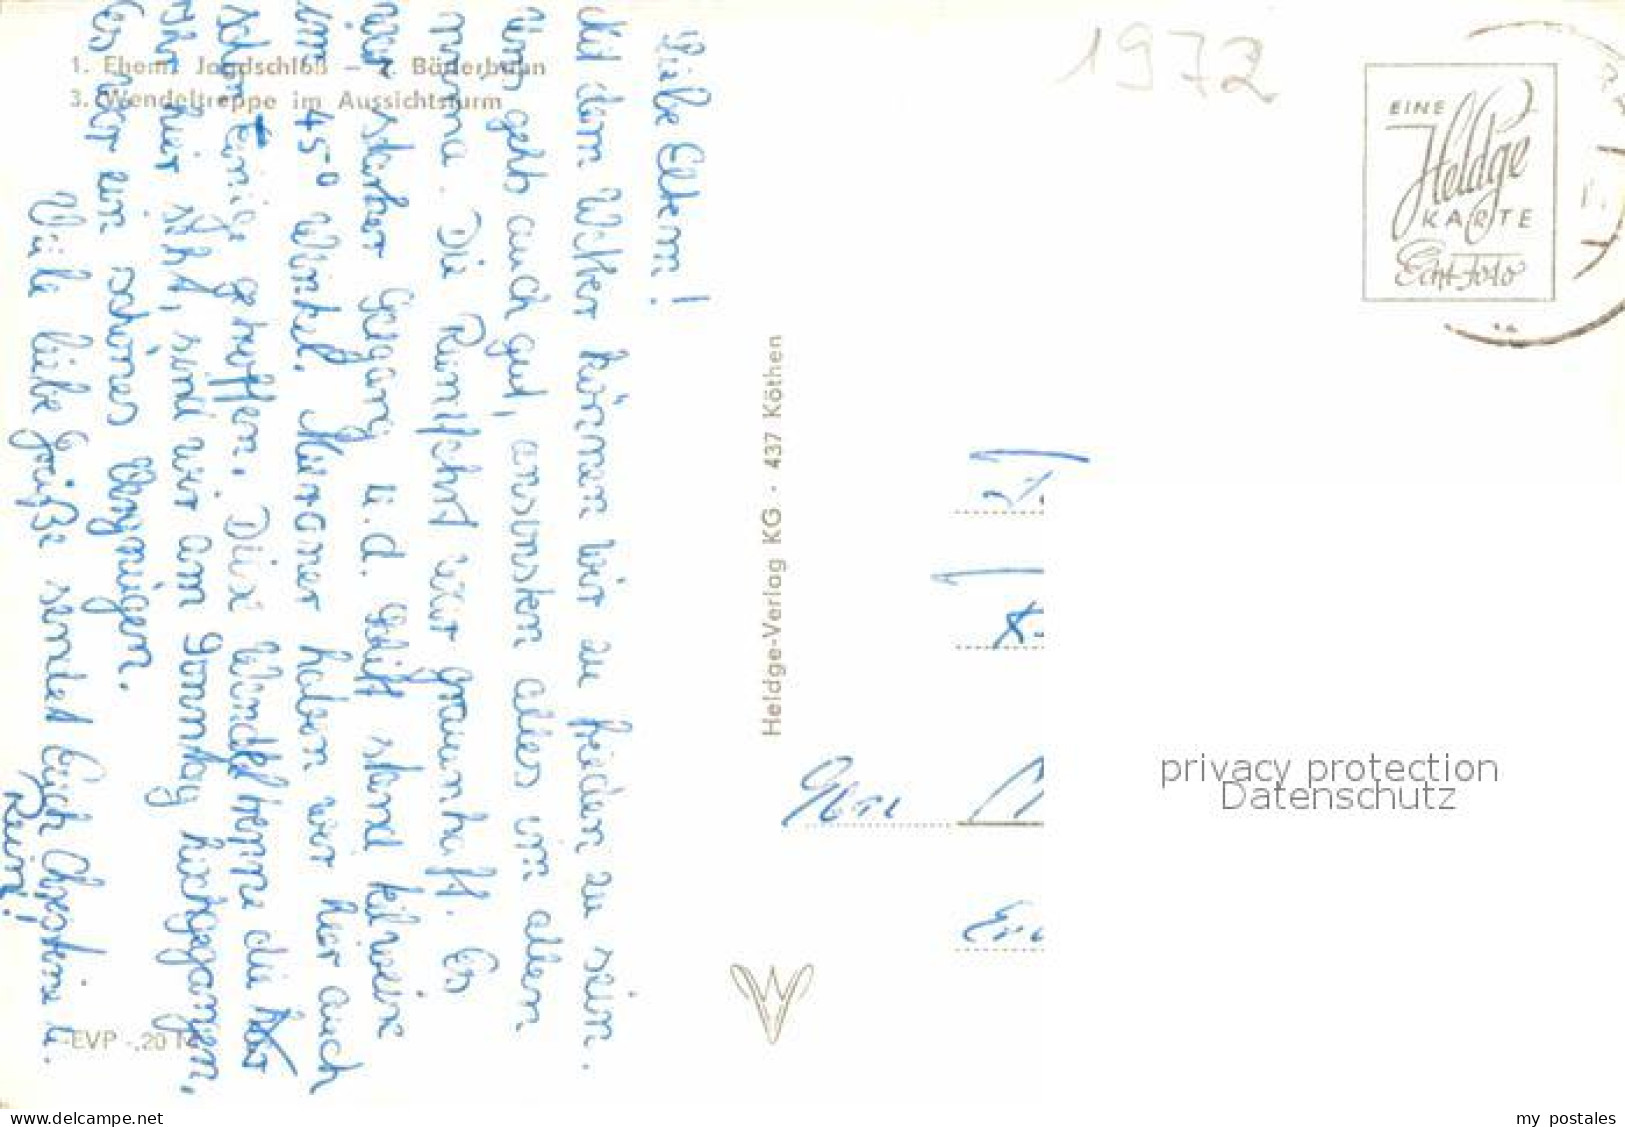 1. Ehem. Jagdschloß — 2. Bäderbahn
3. Wendeltreppe im Aussichtsturm
1972
EINE
Heldge
KARTE
Echt Foto
Liebe Eltern!
Mit dem Wetter können wir zu frieden zu sein.
Uns geht auch gut, ansonsten alles im allen
prima. Die Reinfahrt war grauenhaft. Es
war starker Seegang u. d. Schiff stand teilweise
im 45° Winkel. Meraner haben wir hier auch
schon Einige getroffen. Diese Wendeltreppe die
Ihr hier seht, sind wir am Sonntag hochgegangen,
Es war ein schönes Vergnügen.
Viele liebe Grüße sendet Euch Christine u.
Reini!
Heldge-Verlag KG · 437 Köthen
EVP -,20
privacy protection
Datenschutz
www.delcampe.net
my_postales